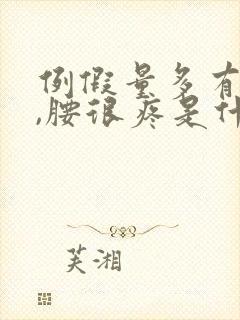 例假量多有
,腰很疼是什
芙湘